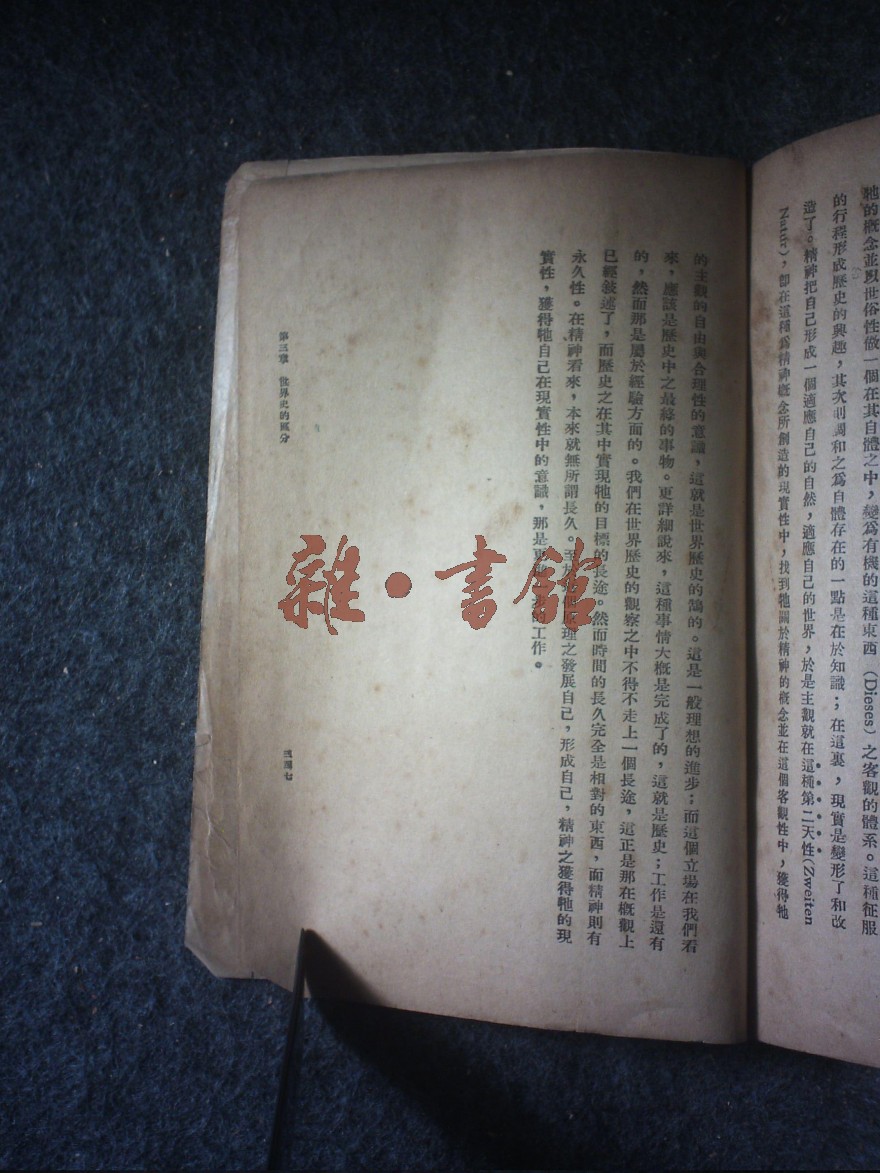 牠的概念並以世俗性做一個在其自體之中，變為有機的這種東西（Dieses）之客觀的體系。這種征服
的行程形成歷史的興趣，其次則調和之為自體存在的一點是在於知識；在這裏，現實是變形了和改
造了。精神把自己形成一個適應自己的自然，適應自己的世界，於是主觀就在這種第二天性(Zweiten
Natur)，卽在這種為精神概念所創造的現實性中，找到牠關於精神的概念並在這個客觀性中，獲得牠
的主觀的自由與合理性的意識，這就是世界歷史的鵠的。這是一般理想的進步；而這個立場在我們看
來，應該是歷史中之最終的事物。更詳細說來，這種事情大概是完成了的，這就是歷史；工作是還有
的，然而那是屬於經驗方面的。我們在世界歷史的觀察之中不得不走上一個長途，這正是那在概觀上
已經敍述了，而歷史之在其中實現牠的目標的長途。然而時間的長久完全是相對的東西，而精神則有
永久性。在精神看來，本來就無所謂長久。理之發展自己，形成自己，精神之獲得牠的現
實性，獲得牠自己在現實性中的意識，那是更的工作。
第三章　世界史的區分
三四七
雜·書館